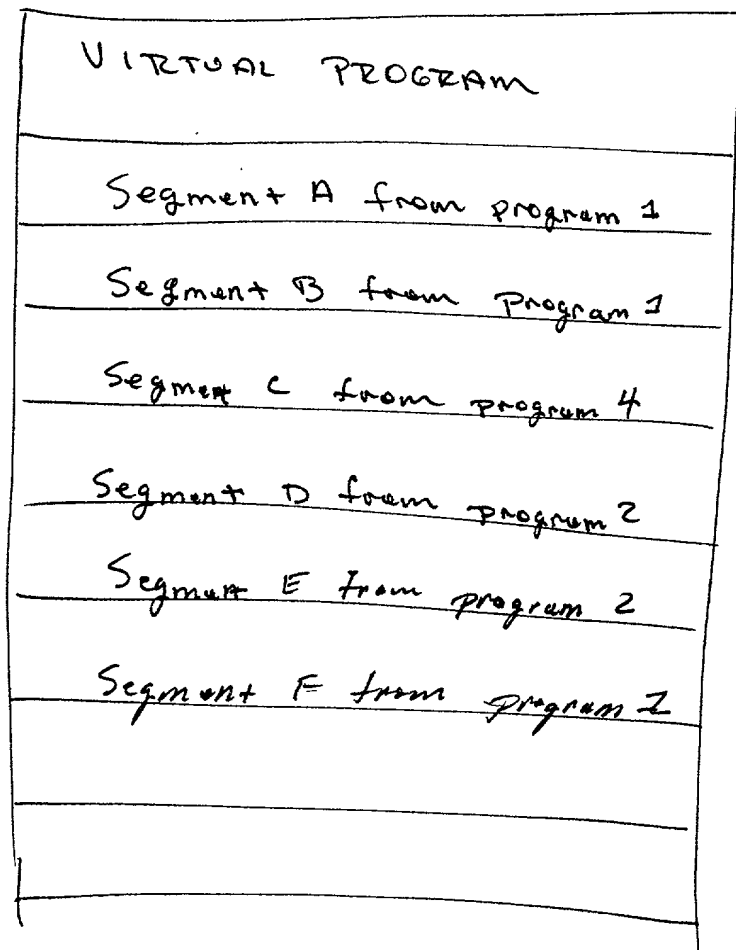 VIRTUAL PROGRAM
Segment A from program 1
Segment B from Program 1
Segment C from program 4
Segment D from program 2
Segment E from program 2
Segment F from program 1